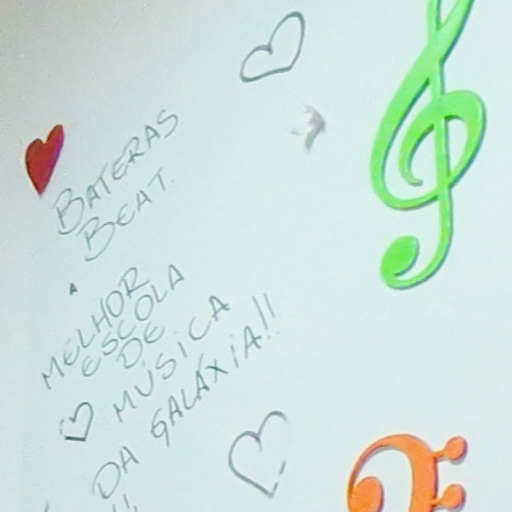 BATERAS
BEAT.
A
MELHOR
ESCOLA
DE
MÚSICA
DA GALÁXIA!!
!!